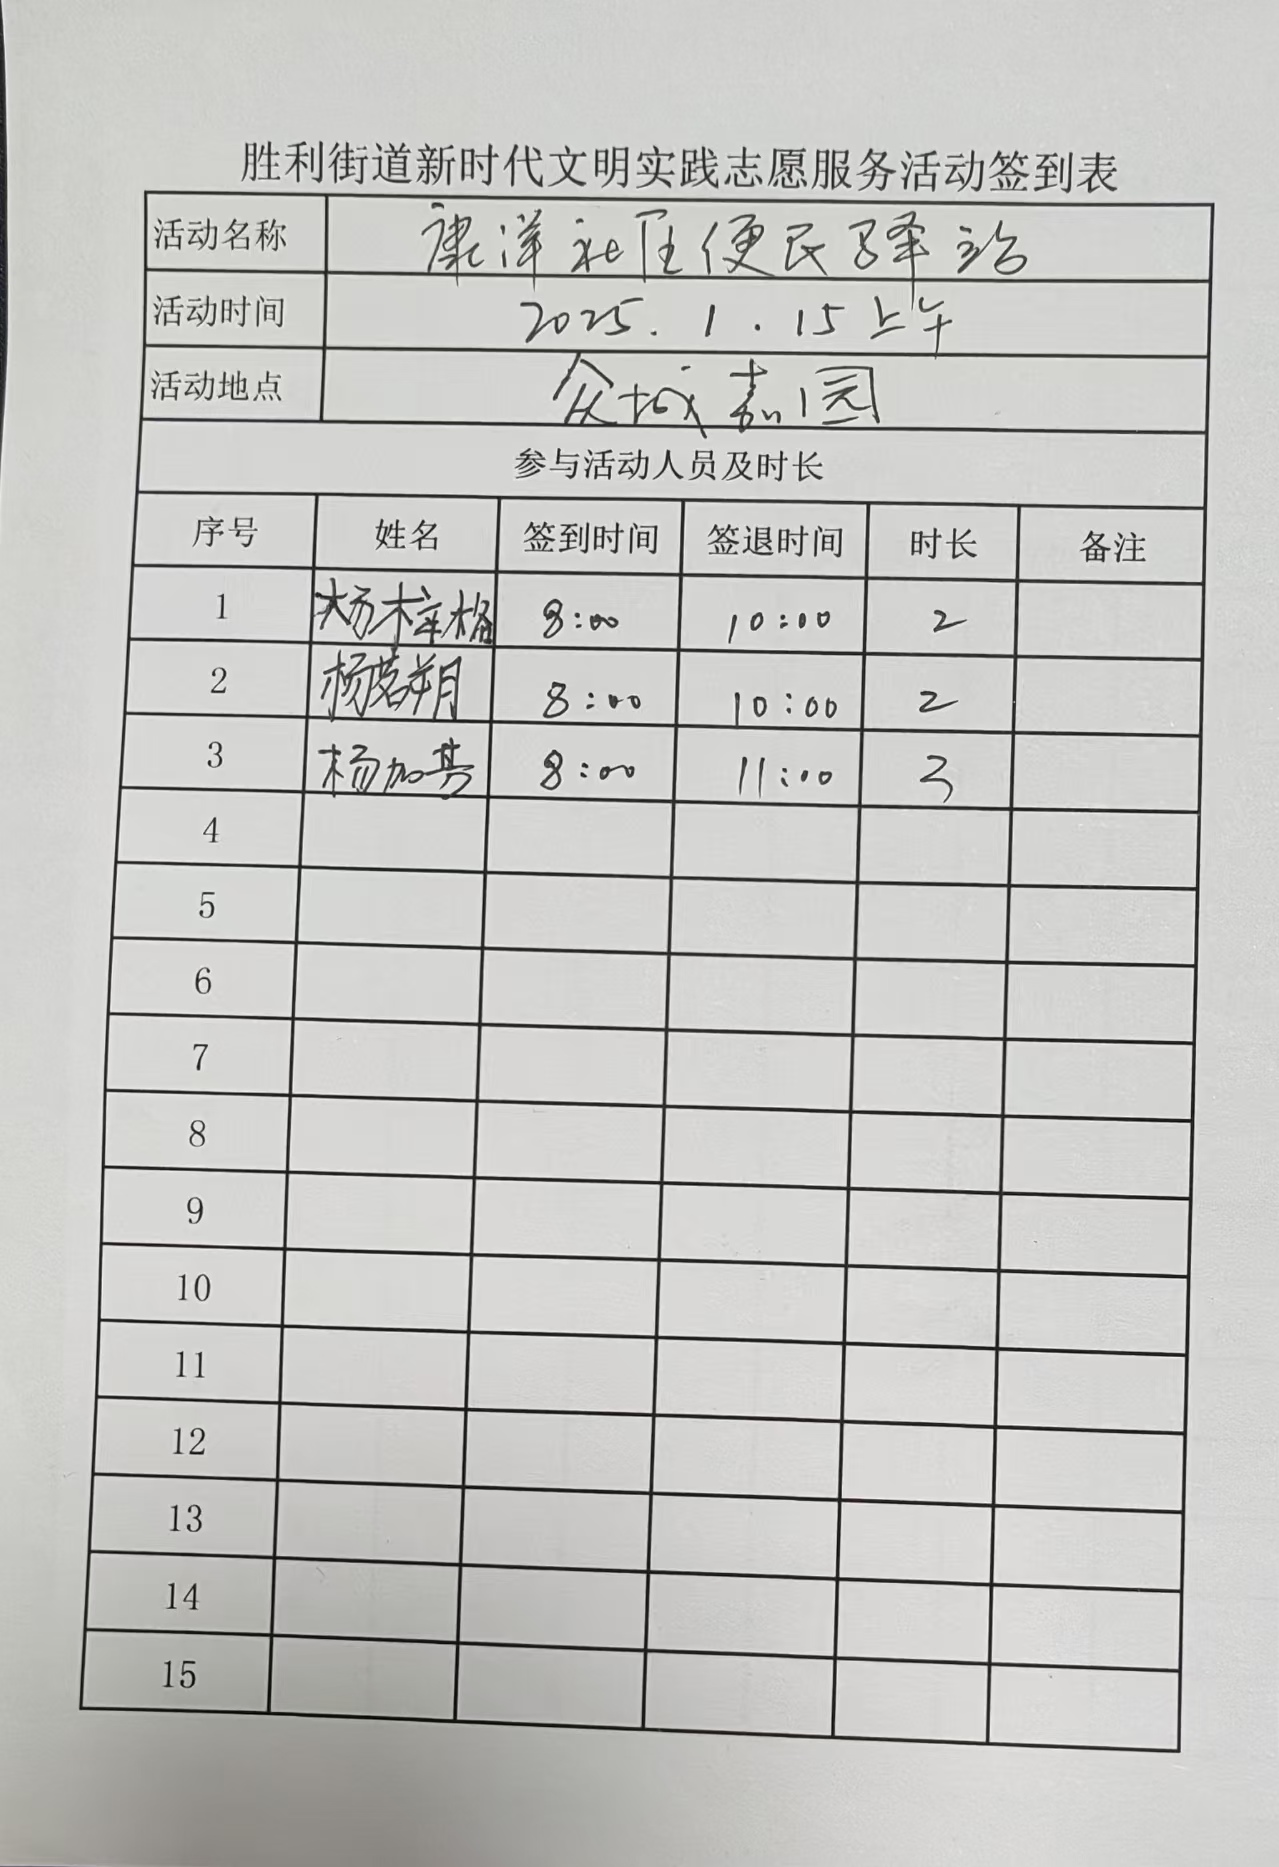 胜利街道新时代文明实践志愿服务活动签到表
活动名称 康洋社区便民驿站
活动时间 2025.1.15上午
活动地点 众城嘉园
参与活动人员及时长
序号 姓名 签到时间 签退时间 时长 备注
1 杨梓格 8:00 10:00 2
2 杨茗朔 8:00 10:00 2
3 杨加其 8:00 11:00 3
4
5
6
7
8
9
10
11
12
13
14
15